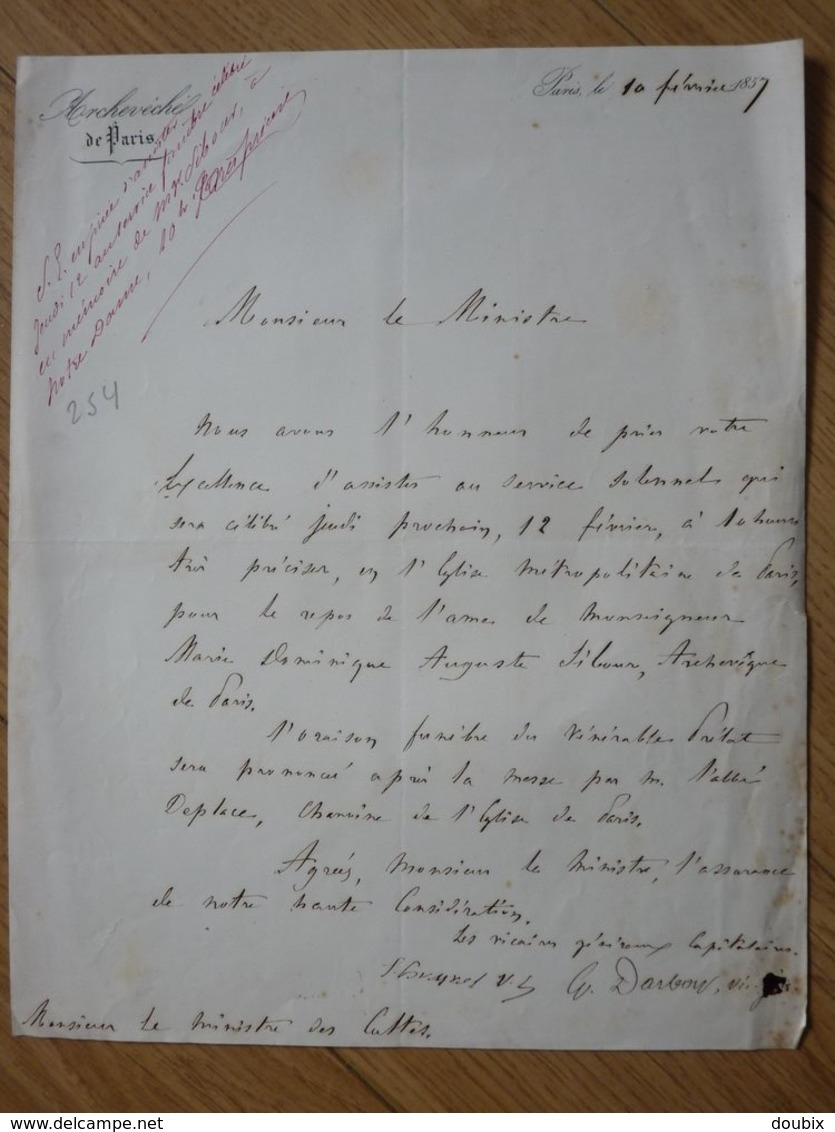 Archevêché
de Paris
Paris, le 10 février 1857
S. E. est priée d'assister
jeudi 12 au service funèbre célébré
en mémoire de Mgr Sibour, à
Notre Dame, 10 h.
254
Monsieur le Ministre
Nous avons l'honneur de prier votre
Excellence d'assister au service solennel qui
sera célébré jeudi prochain, 12 février, à 10 heures
très précises, en l'Eglise métropolitaine de Paris,
pour le repos de l'ame de Monseigneur
Marie Dominique Auguste Sibour, Archevêque
de Paris.
L'oraison funèbre du vénérable Prélat
sera prononcé après la messe par m. l'abbé
Deplace, chanoine de l'Eglise de Paris.
Agréez, Monsieur le ministre, l'assurance
de notre haute Considération.
Les vicaires généraux Capitulaires.
G. Darboy,
Monsieur le ministre des Cultes.
delcampe.net
doubix